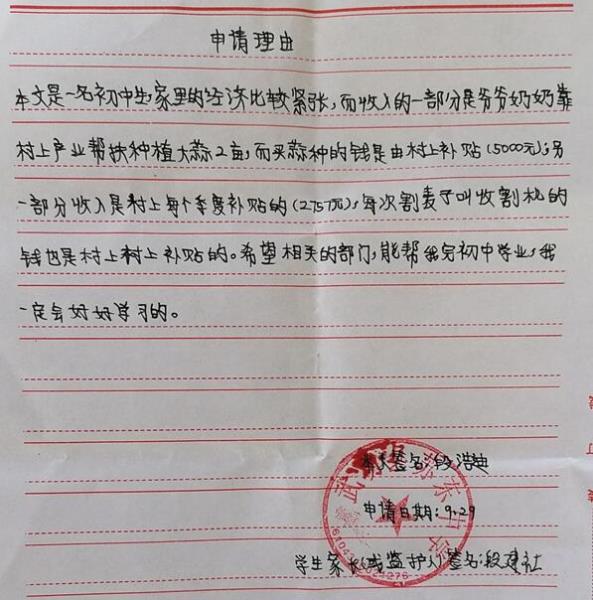 申请理由
本文是一名初中生,家里的经济比较紧张,而收入的一部分是爷爷奶奶靠
村上产业帮扶种植大蒜2亩,而买蒜种的钱是由村上补贴(5000元);另
一部分收入是村上每个季度补贴的(2757元),每次割麦子叫收割机的
钱也是村上村上补贴的。希望相关的部门,能帮我完初中学业,我
一定会好好学习的。
本人签名:段浩迪
申请日期:9.29
学生家长(或监护人)签名:段建社